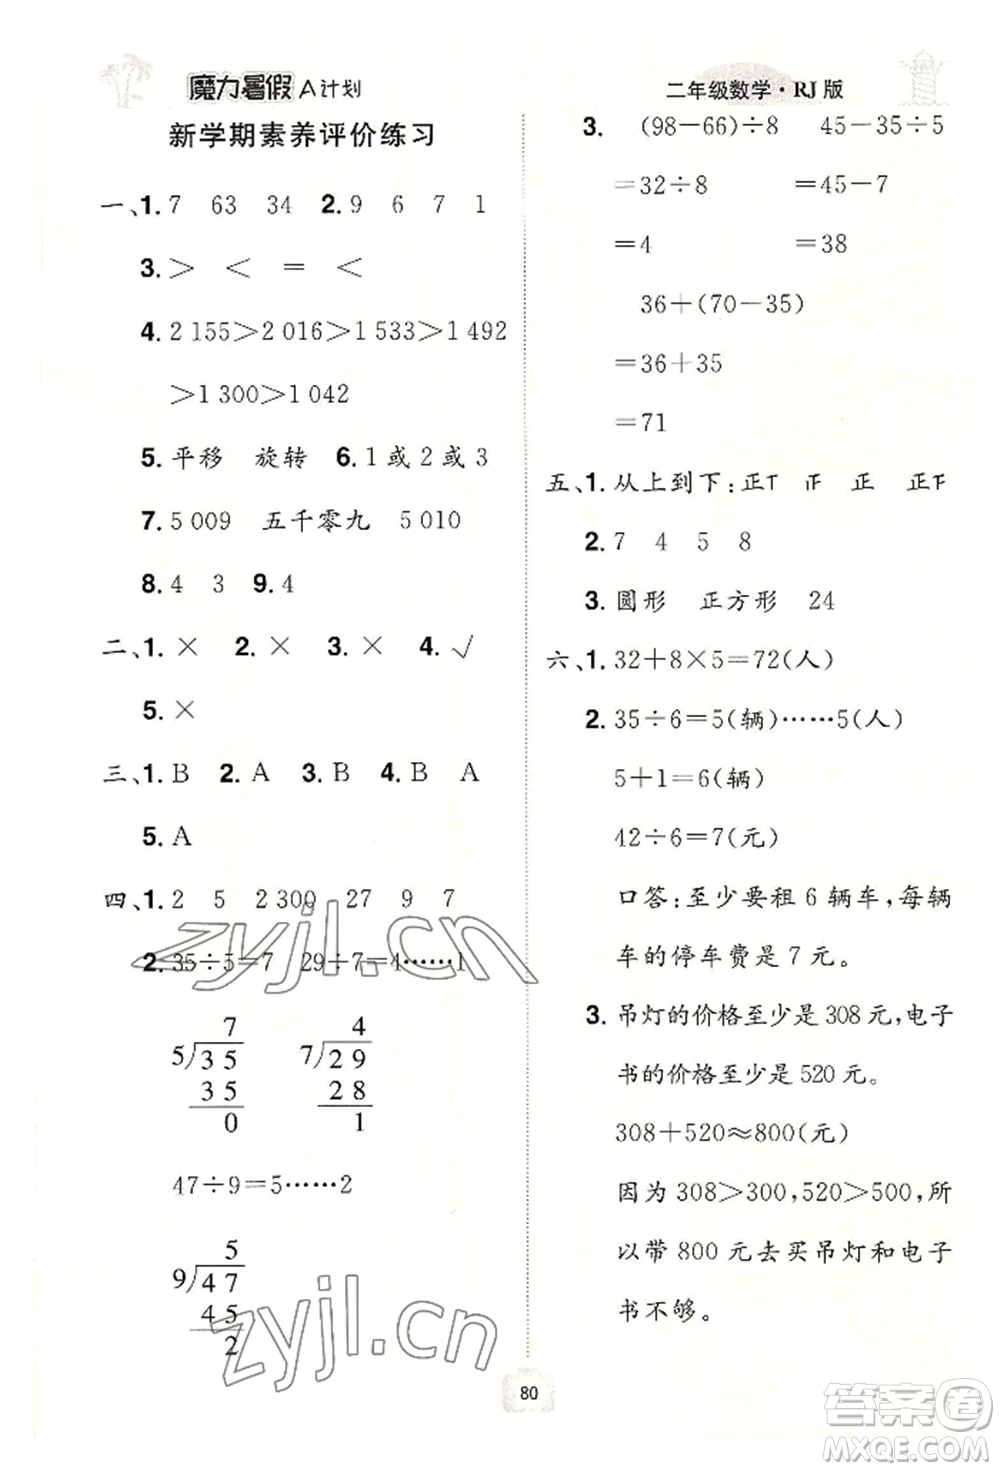 魔力暑假A计划
新学期素养评价练习
一、1. 7 63 34 2. 9 6 7 1
3. > < = <
4. 2 155>2 016>1 533>1 492
>1 300>1 042
5. 平移 旋转 6. 1或2或3
7. 5 009 五千零九 5 010
8. 4 3 9. 4
二、1. × 2. × 3. × 4. √
5. ×
三、1. B 2. A 3. B 4. B A
5. A
四、1. 2 5 2 300 27 9 7
2. 35÷5=7 29÷7=4……1
7 4
5 35 7 29
35 28
0 1
47÷9=5……2
5
9 47
45
2
二年级数学·RJ版
3. (98-66)÷8 45-35÷5
=32÷8 =45-7
=4 =38
36+(70-35)
=36+35
=71
五、1. 从上到下:正 正
2. 7 4 5 8
3. 圆形 正方形 24
六、1. 32+8×5=72(人)
2. 35÷6=5(辆)……5(人)
5+1=6(辆)
42÷6=7(元)
口答:至少要租6辆车,每辆
车的停车费是7元。
3. 吊灯的价格至少是308元,电子
书的价格至少是520元。
308+520≈800(元)
因为308>300,520>500,所
以带800元去买吊灯和电子
书不够。
80
zyjl.cn
zyjl.cn
答案圈
MXQE.COM